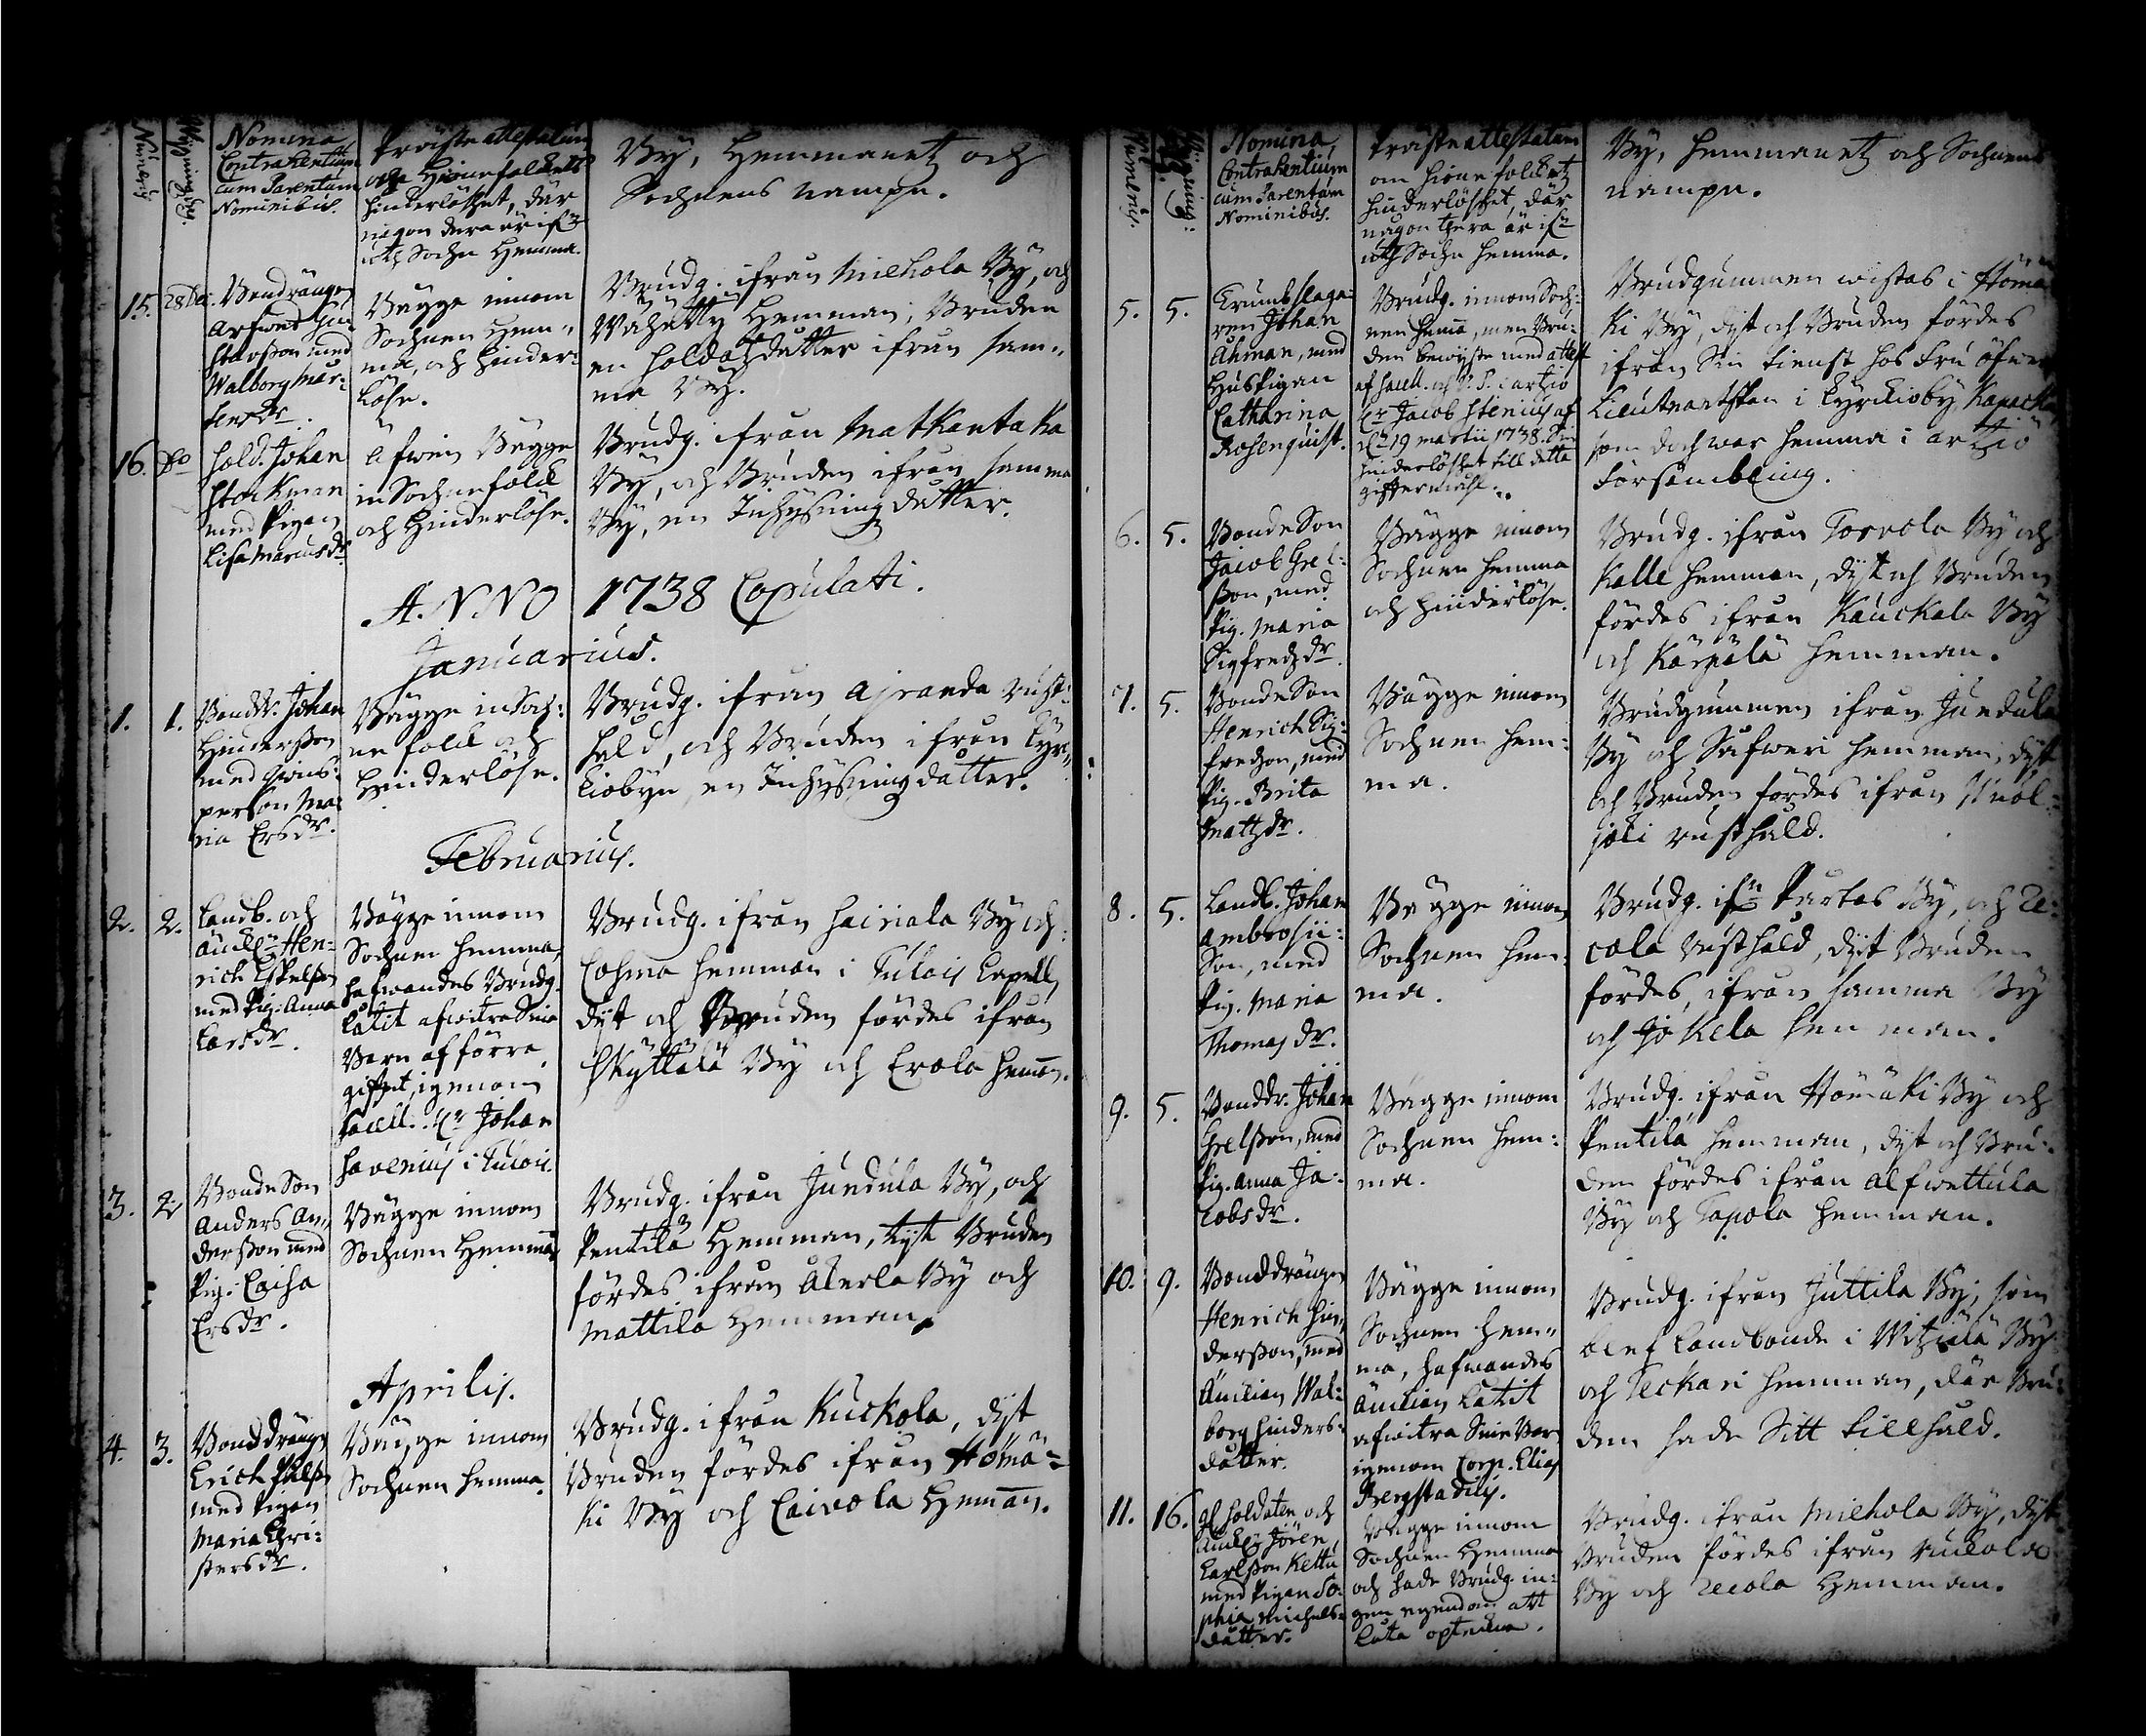 Numerus
Wigningzdag.
Nomina
Contrahentium
cum Parentum
Nominibus.
Präste attestatum
om Hionefolketz
hinderlöshet, där
någon dera är ifrån
Sochn hemma.
By, Hemmanetz och
Sochnens nampn.
15.
28 Dec.
Bondrängen
Arfwed Gu-
stafsson med
Walborg Mår-
tensdr.
Bägge innom
Sochnen Hem-
ma, och hinder-
löse.
Brudg. ifrån Mielhola By, och
Hemman, Bruden
en Soldatzdotter ifrån sam-
ma By.
16.
Do
Sold. Johan
Stockman
med Pigan
Lisa Marcusdr
Äfwen Bägge
in Sochnefolck
och hinderlöse.
Brudg. ifrån Matkantaka
By, och Bruden ifrån samma
By, en Inhysning dotter.
ANNO 1738 Copulati.
Januarius.
1.
1.
Bonddr. Johan
Hindersson
med
person Ma-
ria Ersdr.
Bägge in Soch-
ne folck och
hinderlöse.
Brudg. ifrån Ajranda rust-
held, och Bruden ifrån Kyr-
kiobyn, en Inhysning dotter.
Februarius.
2.
2.
Landb. och
Änckl. Hen-
rich Eskelsson
med Pig. Anna
Larsdr.
Bägge innom
Sochnen hemma,
hafwandes Brudg.
låtit afwitra Sina
Barn af förra
giftet, igenom
Sacell. Hr Johan
Havenius i Tulois.
Brudg. ifrån Hainala By och
Cohma hemman i Tulois Capell,
dijt och Bruden fördes ifrån
Skyttälä By och Erola hemman.
3.
2.
Bonde Son
Anders An-
dersson med
Pig. Caisa
Ersdr.
Bägge innom
Sochnen Hemma
Brudg. ifrån Jundula By, och
Pentilä Hemman, tijt Bruden
fördes ifrån Akerla By och
Mattila Hemman.
Aprilis.
4.
3.
Bonddrängen
Erich Pålss.
med Pigan
Maria Chri-
stersdr.
Bägge innom
Sochnen hemma.
Brudg. ifrån Kuckola, dijt
Bruden fördes ifrån Hömä-
ki By och Caivola Hemman.
Numerus.
Wigning-
dag
Nomina,
Contrahentium
cum Parentum
Nominibus.
Präste attestatum
om hione folketz
hinderlöshet, där
någon thera är ifrån
Sochn hemma.
By, hemmanetz och Sochnens
nampn.
5.
5.
Trumbslaga-
ren Johan
Åhman, med
Huspigan
Catharina
Rosenquist.
Brudg. innom Soch-
nen hema, men Bru-
den bewijste med attest
af Sacell. och V. P. i Artziö
Hr Jacob Stenius af
d. 19 Martii 1738. Sin
hinderlöshet till detta
giftermåhl.
Brudgummen wistas i Hömä
ki By, dijt och Bruden fördes
ifrån Sin tienst hos Fru Öfwer
Lieutnantskan i Kyrkioby,
som doch war hemma i Artziö
Försambling.
6.
5.
Bonde Son
Jacob Grel-
sson, med
Pig. Maria
Sigfredzdr.
Bägge innom
Sochnen hemma
och hinderlöse.
Brudg. ifrån Torvola By och
Kalle hemman, dijt och Bruden
fördes ifrån Kauckala By
och Kärpälä hemman.
7.
5.
Bonde Son
Henrich Sig-
fredzon, med
Pig. Brita
Matzdr.
Bägge innom
Sochnen hem-
ma.
Brudgummen ifrån Jundula
By och Safweri hemman, dijt
och Bruden fördes ifrån Nuol-
joki rusthåld.
8.
5.
Landb. Johan
Ambrosii-
Son, med
Pig. Maria
Thomas dr.
Bägge innom
Sochnen hem-
ma.
Brudg. ifrån Purkas By, och
cola rusthåld, dijt Bruden
fördes, ifrån samma By
och Jokela hemman.
9.
5.
Bonddr. Johan
Grelsson, med
Pig. Anna Ja-
cobs dr.
Bägge innom
Sochnen hem-
ma.
Brudg. ifrån Hömäki By och
Pentilä hemman, dijt och Bru-
den fördes ifrån Alfwettula
By och Tapola hemman.
10.
9.
Bonddrängen
Henrich Hin-
dersson, med
Änckian Wal-
borg Hinders-
dotter.
Bägge innom
Sochnen hem-
ma, hafwandes
Änckian låtit
afwitra Sine Barn
igenom Corp. Elias
Bergstadius.
Brudg. ifrån Juttila By, som
blef landbonde i Witziälä By
och Teckari hemman, där Bru-
den hade Sitt tillhåld.
11.
16.
gl. Soldaten och
Änckl. Jören
Carlsson Kettu
med Pigan So-
phia Michels-
dotter.
Bägge innom
Sochnen Hemma
och hade Brudg. in-
gen egendom att
låta opteckna.
Brudg. ifrån Mielhola By, dijt
Bruden fördes ifrån
By och Hemman.